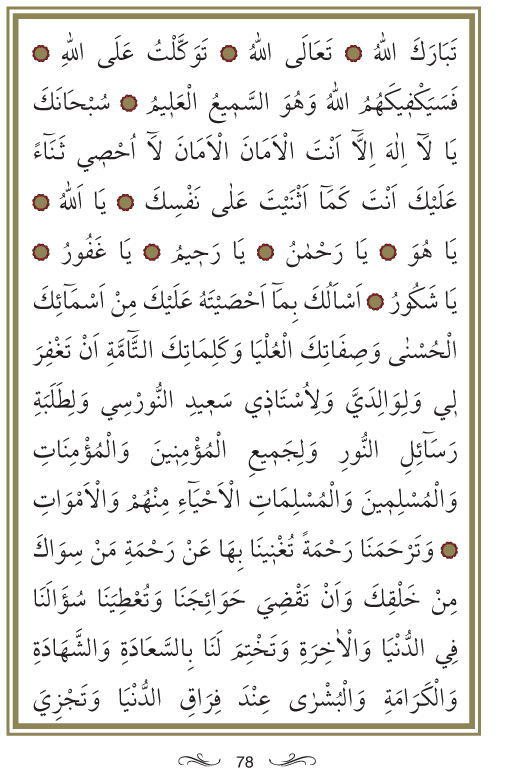 تَبَارَكَ اللهُ ۞ تَعَالَى اللهُ ۞ تَوَكَّلْتُ عَلَى اللهِ ۞
فَسَيَكْفِيكَهُمُ اللهُ وَهُوَ السَّمِيعُ الْعَلِيمُ ۞ سُبْحَانَكَ
يَا لَٓا اِلٰهَ اِلَّٓا اَنْتَ الْاَمَانَ الْاَمَانَ لَٓا اُحْصِي ثَنَٓاءً
عَلَيْكَ اَنْتَ كَمَٓا اَثْنَيْتَ عَلٰى نَفْسِكَ ۞ يَا اَللهُ ۞
يَا هُوَ ۞ يَا رَحْمٰنُ ۞ يَا رَحِيمُ ۞ يَا غَفُورُ ۞
يَا شَكُورُ ۞ اَسْاَلُكَ بِمَٓا اَحْصَيْتَهُ عَلَيْكَ مِنْ اَسْمَٓائِكَ
الْحُسْنٰى وَصِفَاتِكَ الْعُلْيَا وَكَلِمَاتِكَ التَّٓامَّةِ اَنْ تَغْفِرَ
لِي وَلِوَالِدَيَّ وَلِاُسْتَاذِي سَعِيدِ النُّورْسِي وَلِطَلَبَةِ
رَسَٓائِلِ النُّورِ وَلِجَمِيعِ الْمُؤْمِنِينَ وَالْمُؤْمِنَاتِ
وَالْمُسْلِمِينَ وَالْمُسْلِمَاتِ الْاَحْيَٓاءِ مِنْهُمْ وَالْاَمْوَاتِ
۞ وَتَرْحَمَنَا رَحْمَةً تُغْنِينَا بِهَا عَنْ رَحْمَةِ مَنْ سِوَاكَ
مِنْ خَلْقِكَ وَاَنْ تَقْضِيَ حَوَائِجَنَا وَتُعْطِيَنَا سُؤَالَنَا
فِي الدُّنْيَا وَالْاٰخِرَةِ وَتَخْتِمَ لَنَا بِالسَّعَادَةِ وَالشَّهَادَةِ
وَالْكَرَامَةِ وَالْبُشْرٰى عِنْدَ فِرَاقِ الدُّنْيَا وَتَجْزِيَ
78